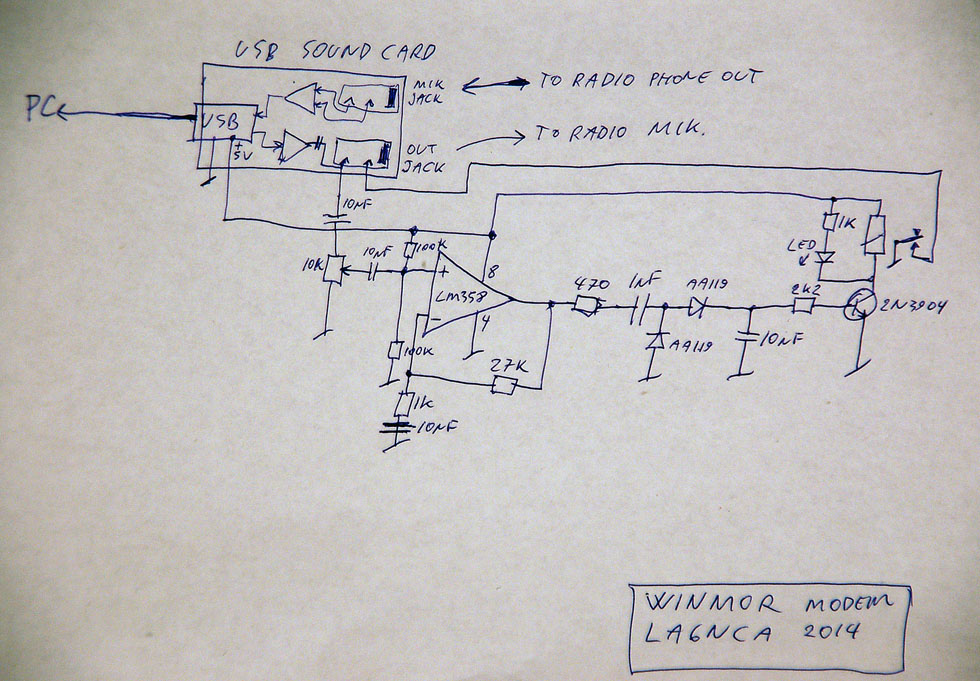 USB SOUND CARD
MIK
JACK
TO RADIO PHONE OUT
PC
USB
+
5V
OUT
JACK
TO RADIO MIK.
10nF
10K
10nF
100K
+
8
LM358
-
4
100K
27K
1K
10nF
470
1nF
AA119
AA119
10nF
2K2
1K
LED
2N3904
WINMOR MODEM
LA6NCA 2014